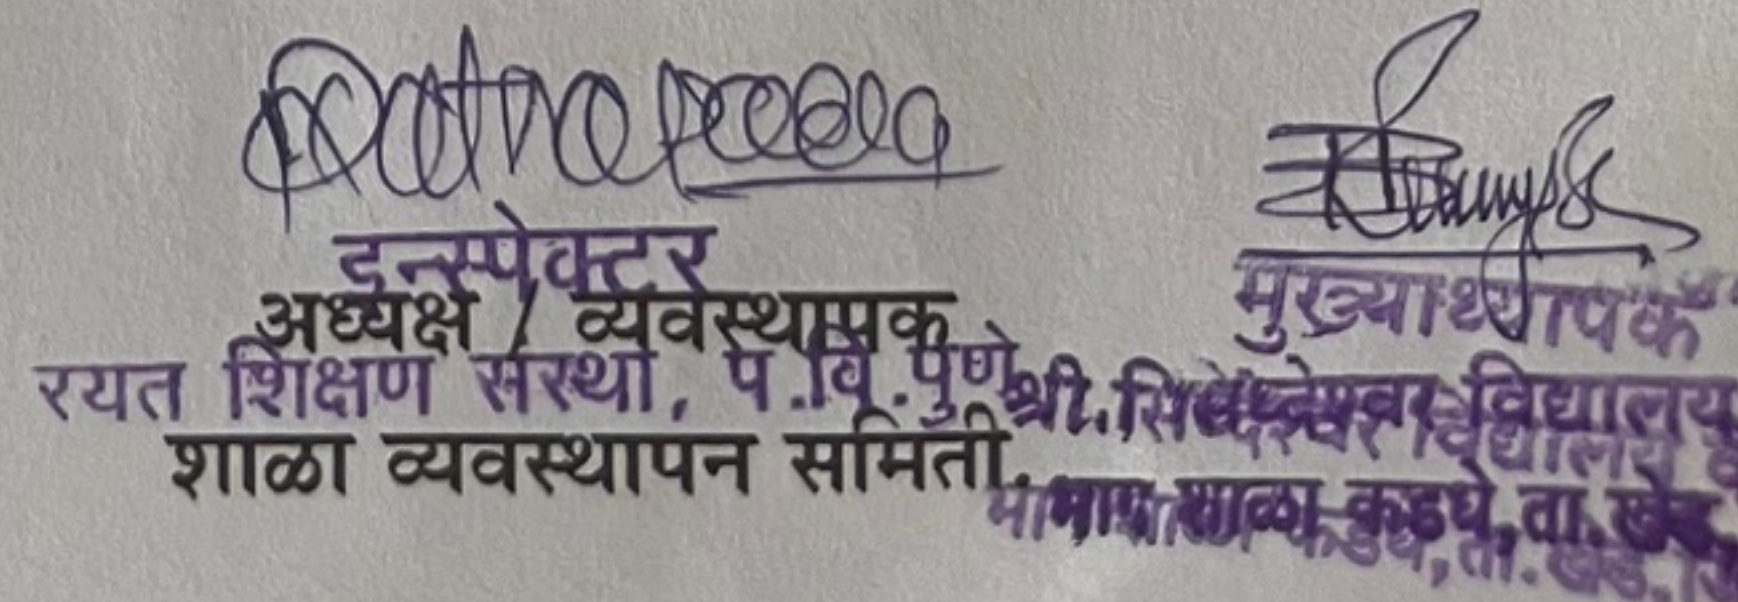 इन्स्पेक्टर
अध्यक्ष / व्यवस्थापक
रयत शिक्षण संस्था, प.वि.पुणे
शाळा व्यवस्थापन समिती.
मुख्याध्यापक
श्री. विद्यालय
शाळा कडधे, ता. खेड